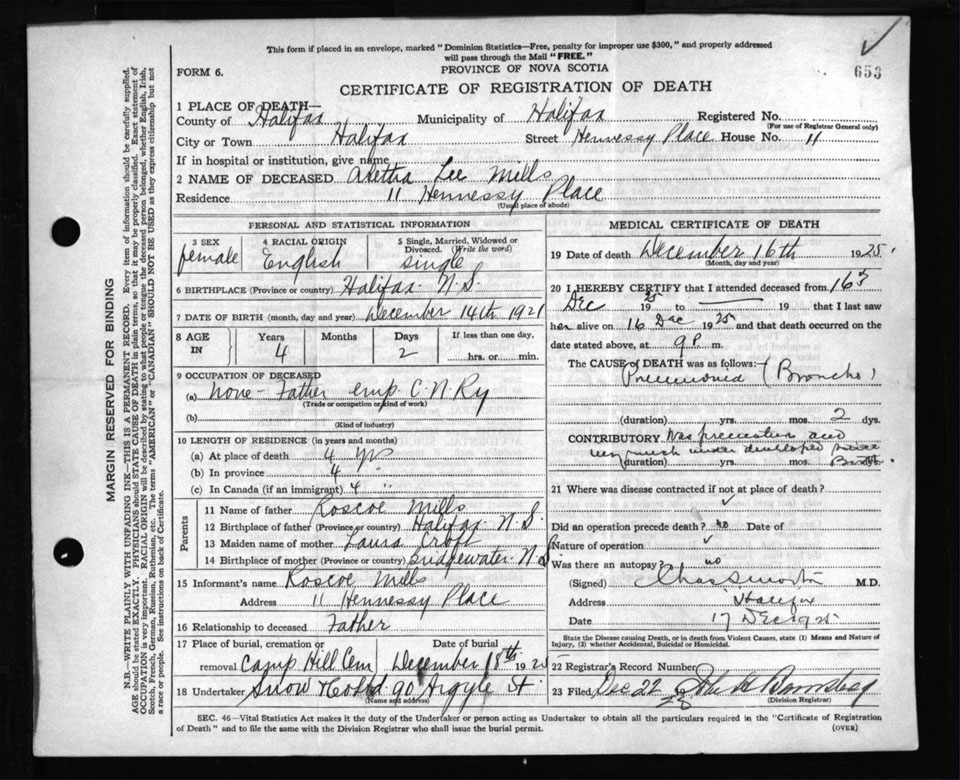 This form if placed in an envelope, marked "Dominion Statistics—Free, penalty for improper use $300," and properly addressed
will pass through the Mail "FREE."
653
FORM 6.
PROVINCE OF NOVA SCOTIA
CERTIFICATE OF REGISTRATION OF DEATH
1 PLACE OF DEATH—
County of Halifax Municipality of Halifax Registered No.
(For use of Registrar General only)
City or Town Halifax Street Hennessy Place House No. 11
If in hospital or institution, give name
2 NAME OF DECEASED Lee Mills
Residence 11 Hennessy Place
(Usual place of abode)
PERSONAL AND STATISTICAL INFORMATION
3 SEX female
4 RACIAL ORIGIN English
5 Single, Married, Widowed or Divorced. (Write the word) single
6 BIRTHPLACE (Province or country) Halifax N.S.
7 DATE OF BIRTH (month, day and year) December 14th 1921
8 AGE IN Years 4 Months Days 2 If less than one day, hrs. or min.
9 OCCUPATION OF DECEASED
(a) none - Father emp C.N.Ry
(Trade or occupation or kind of work)
(b)
(Kind of industry)
10 LENGTH OF RESIDENCE (in years and months)
(a) At place of death 4 yrs
(b) In province 4 "
(c) In Canada (if an immigrant) 4 "
Parents
11 Name of father Roscoe Mills
12 Birthplace of father (Province or country) Halifax N.S.
13 Maiden name of mother Laura Croft
14 Birthplace of mother (Province or country) Bridgewater N.S.
15 Informant's name Roscoe Mills
Address 11 Hennessy Place
16 Relationship to deceased Father
17 Place of burial, cremation or removal Camp Hill Cem
Date of burial December 18th 1925
18 Undertaker Snow & Co Ltd 90 Argyle St.
(Name and address)
MEDICAL CERTIFICATE OF DEATH
19 Date of death December 16th 1925.
(Month, day and year)
20 I HEREBY CERTIFY that I attended deceased from 16
Dec 1925 to 19 that I last saw
her alive on 16 Dec 1925 and that death occurred on
date stated above, at 9 P. m.
The CAUSE OF DEATH was as follows:
Pneumonia (Broncho)
(duration) yrs. mos. 2 dys.
CONTRIBUTORY Was premature and
very much under developed since
(duration) yrs. mos. Birth dys.
21 Where was disease contracted if not at place of death?
Did an operation precede death? no Date of
Nature of operation
Was there an autopsy? no
(Signed) M.D.
Address Halifax
Date 17 Dec 1925
State the Disease causing Death, or in death from Violent Causes, state (1) Means and Nature of
Injury, (2) whether Accidental, Suicidal or Homicidal.
22 Registrar's Record Number
23 Filed Dec 22
(Division Registrar)
SEC. 46—Vital Statistics Act makes it the duty of the Undertaker or person acting as Undertaker to obtain all the particulars required in the "Certificate of Registration
of Death" and to file the same with the Division Registrar who shall issue the burial permit.
(OVER)
MARGIN RESERVED FOR BINDING
N.B.—WRITE PLAINLY WITH UNFADING INK—THIS IS A PERMANENT RECORD. Every item of information should be carefully supplied.
AGE should be stated EXACTLY. PHYSICIANS should STATE CAUSE OF DEATH in plain terms, so that it may be properly classified. Exact statement of
OCCUPATION is very important. RACIAL ORIGIN will be described by stating to what people or tongue the deceased person belonged, whether English, Irish,
Scotch, French, German, Russian, Ruthenian, etc. The terms "AMERICAN" or "CANADIAN" SHOULD NOT BE USED as they express citizenship but not
a race or people. See instructions on back of Certificate.